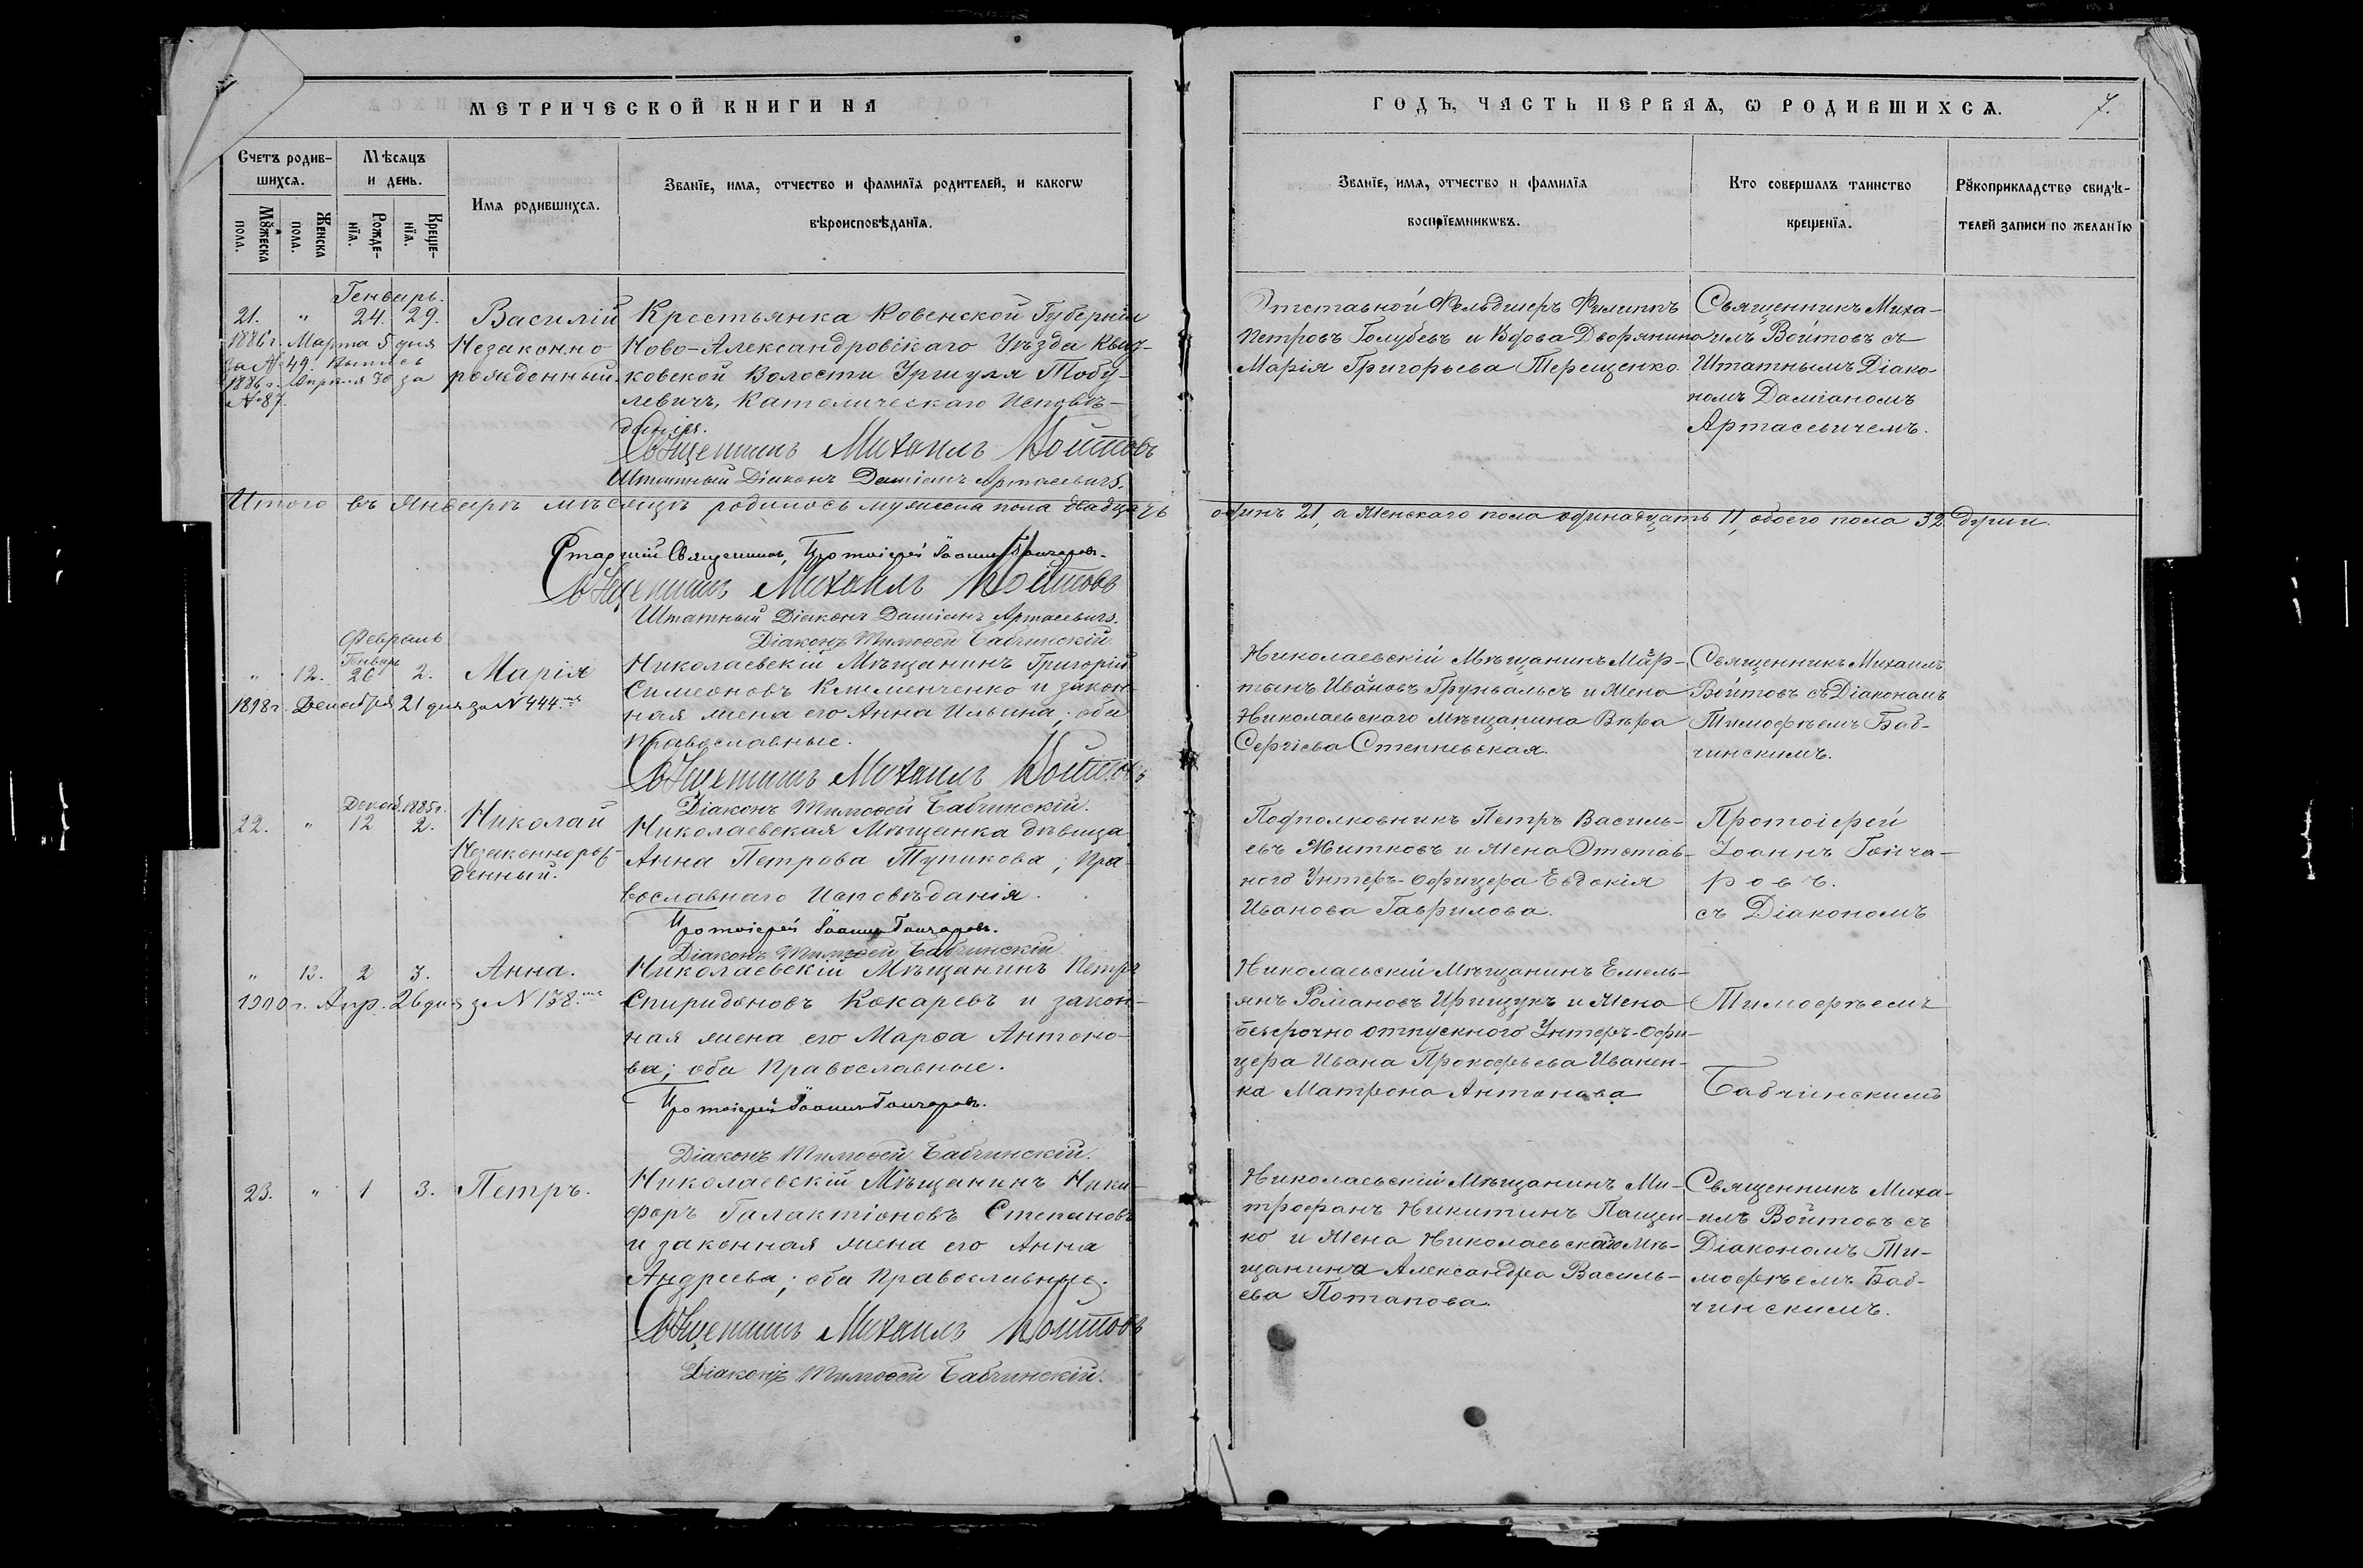 МЕТРИЧЕСКОЙ КНИГИ НА
Счетъ родив-
шихсѧ.
Мѣсѧцъ
и день.
Имѧ родившихсѧ.
Званїе, имѧ, отчество и фамилїѧ родителей, и какогѡ
вѣроисповѣданїѧ.
Мꙋжеска
пола.
Женска
пола.
Рожде-
нїѧ.
Креще-
нїѧ.
Генварь.
21. " 24. 29.
1886 г. Марта 5 дня
за № 49. Выпись
1886 г. Апреля 30 за
№ 87.
Василій
Незаконно
рожденный.
Крестьянка Ковенской Губерніи
Ново-Александровскаго Уѣзда
ковской Волости Уршуля Тобу-
левичъ, Католическаго Исповѣ-
данія.
Священникъ Михаилъ Войтовъ
Штатный Діаконъ Даміанъ Артасевичъ.
Итого въ Январѣ мѣсяцѣ родилось мужеска пола двадцать
Старшій Священникъ, Протоіерей Іоаннъ Гончаровъ.
Священникъ Михаилъ Войтовъ
Штатный Діаконъ Даміанъ Артасевичъ.
Діаконъ Тимоѳей Бабчинскій.
Февраль
Генварь
" 12. 26 2.
1898 г. Декабря 21 дня за № 444.
Марія
Николаевскій Мѣщанинъ Григорій
Симеоновъ Клименченко и закон-
ная жена его Анна Ильина; оба
православные.
Священникъ Михаилъ Войтовъ
Діаконъ Тимоѳей Бабчинскій.
Декаб. 1885 г.
22. " 12 2.
Николай
Незаконнорож-
денный.
Николаевская Мѣщанка дѣвица
Анна Петрова Тупикова; Пра-
вославнаго Исповѣданія.
Протоіерей Іоаннъ Гончаровъ.
Діаконъ Тимоѳей Бабчинскій
" 13. 2 3.
1900 г. Апр. 26 дня за № 138.
Анна.
Николаевскій Мѣщанинъ Петръ
Спиридоновъ Кокаревъ и закон-
ная жена его Марѳа Антоно-
ва; оба Православные.
Протоіерей Іоаннъ Гончаровъ.
Діаконъ Тимоѳей Бабчинскій.
23. " 1 3. Петръ.
Николаевскій Мѣщанинъ Ники-
форъ Галактіоновъ Степановъ
и законная жена его Анна
Андреева; оба Православные.
Священникъ Михаилъ Войтовъ
Діаконъ Тимоѳей Бабчинскій.
ГОДЪ, ЧАСТЬ ПЕРВАѦ, Ѡ РОДИВШИХСѦ.
7.
Званїе, имѧ, отчество и фамилїѧ
воспрїемникѡвъ.
Кто совершалъ таинство
крещенїѧ.
Рꙋкоприкладство свидѣ-
телей записи по желанїю
Отставной Фельдшеръ Филиппъ
Петровъ Голубевъ и Вдова Дворянина
Марія Григорьева Терещенко.
Священникъ Миха-
илъ Войтовъ съ
Штатнымъ Діако-
номъ Даміаномъ
Артасевичемъ.
одинъ 21, а Женскаго пола одинадцать 11, обоего пола 32 души.
Николаевскій Мѣщанинъ Мар-
тынъ Ивановъ Грунвальсъ и Жена
Николаевскаго Мѣщанина Вѣра
Сергіева Степневская.
Священникъ Михаилъ
Войтовъ съ Діакономъ
Тимофѣемъ Баб-
чинскимъ.
Подполковникъ Петръ Василь-
евъ Житковъ и Жена Отстав-
ного Унтеръ-Офицера Евдокія
Иванова Гаврилова.
Протоіерей
Іоаннъ Гонча-
ровъ.
съ Діакономъ
Николаевскій Мѣщанинъ Емель-
янъ Романовъ Ирищукъ и Жена
безсрочно отпускного Унтеръ-Офи-
цера Ивана Прокофьева Иванен-
ка Матрона Антонова
Тимофѣемъ
Бабчинскимъ
Николаевскій Мѣщанинъ Ми-
трофанъ Никитинъ Пащен-
ко и Жена Николаевскаго Мѣ-
щанина Александра Василь-
ева Потапова.
Священникъ Миха-
илъ Войтовъ съ
Діакономъ Ти-
мофѣемъ Баб-
чинскимъ.